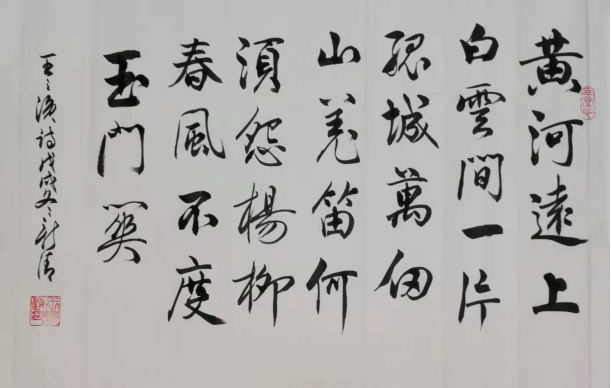 黄河遠上
白雲間一片
孤城萬仞
山羌笛何
須怨楊柳
春風不度
玉門關
王之渙詩戊戌冬